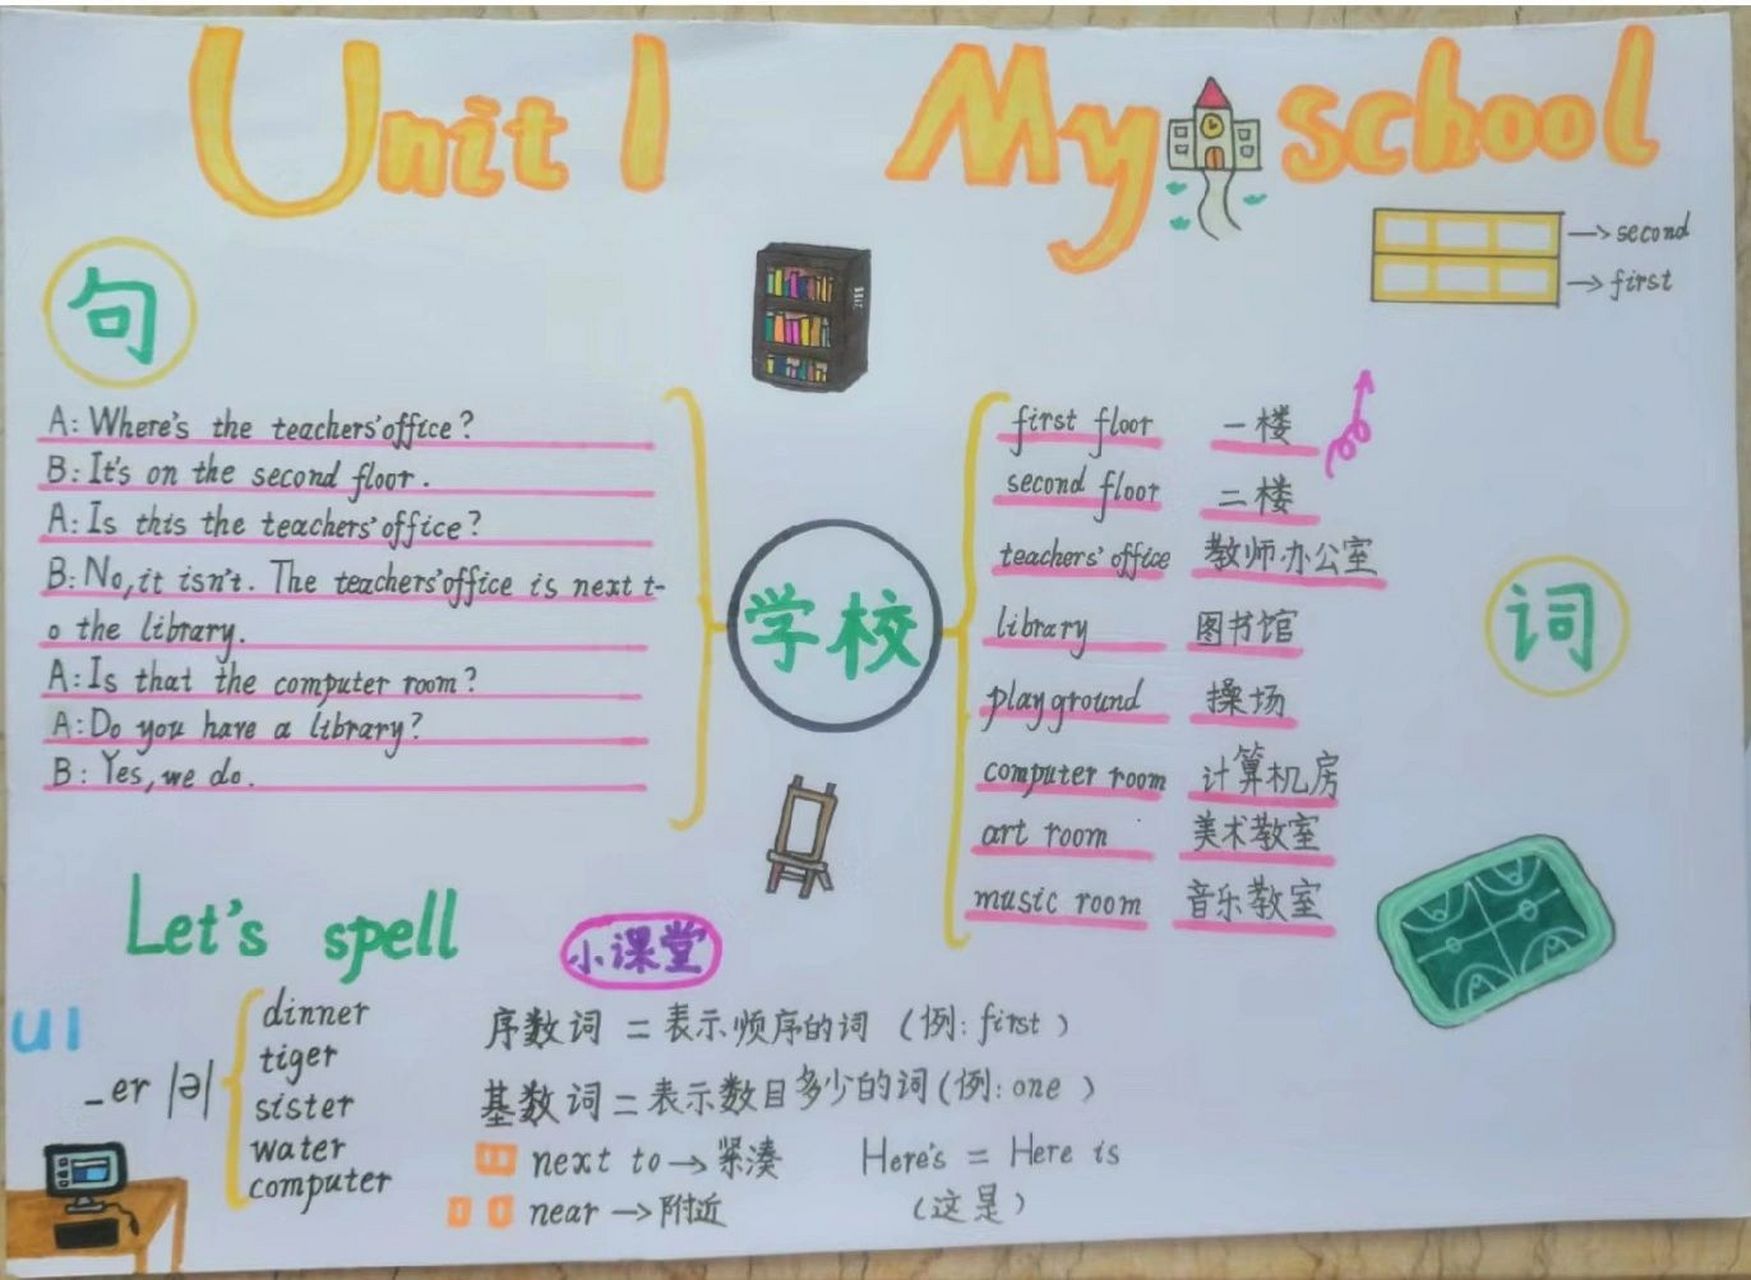 Unit 1 My school
→second
→first
句
A: Where's the teachers' office?
B: It's on the second floor.
A: Is this the teachers' office?
B: No, it isn't. The teachers' office is next t-
o the library.
A: Is that the computer room?
A: Do you have a library?
B: Yes, we do.
学校
first floor 一楼
second floor 二楼
teachers' office 教师办公室
library 图书馆
playground 操场
computer room 计算机房
art room 美术教室
music room 音乐教室
词
Let's spell
U1
_er |ə|
dinner
tiger
sister
water
computer
小课堂
序数词 = 表示顺序的词 (例: first)
基数词 = 表示数目多少的词 (例: one)
next to → 紧凑
near → 附近
Here's = Here is
(这是)